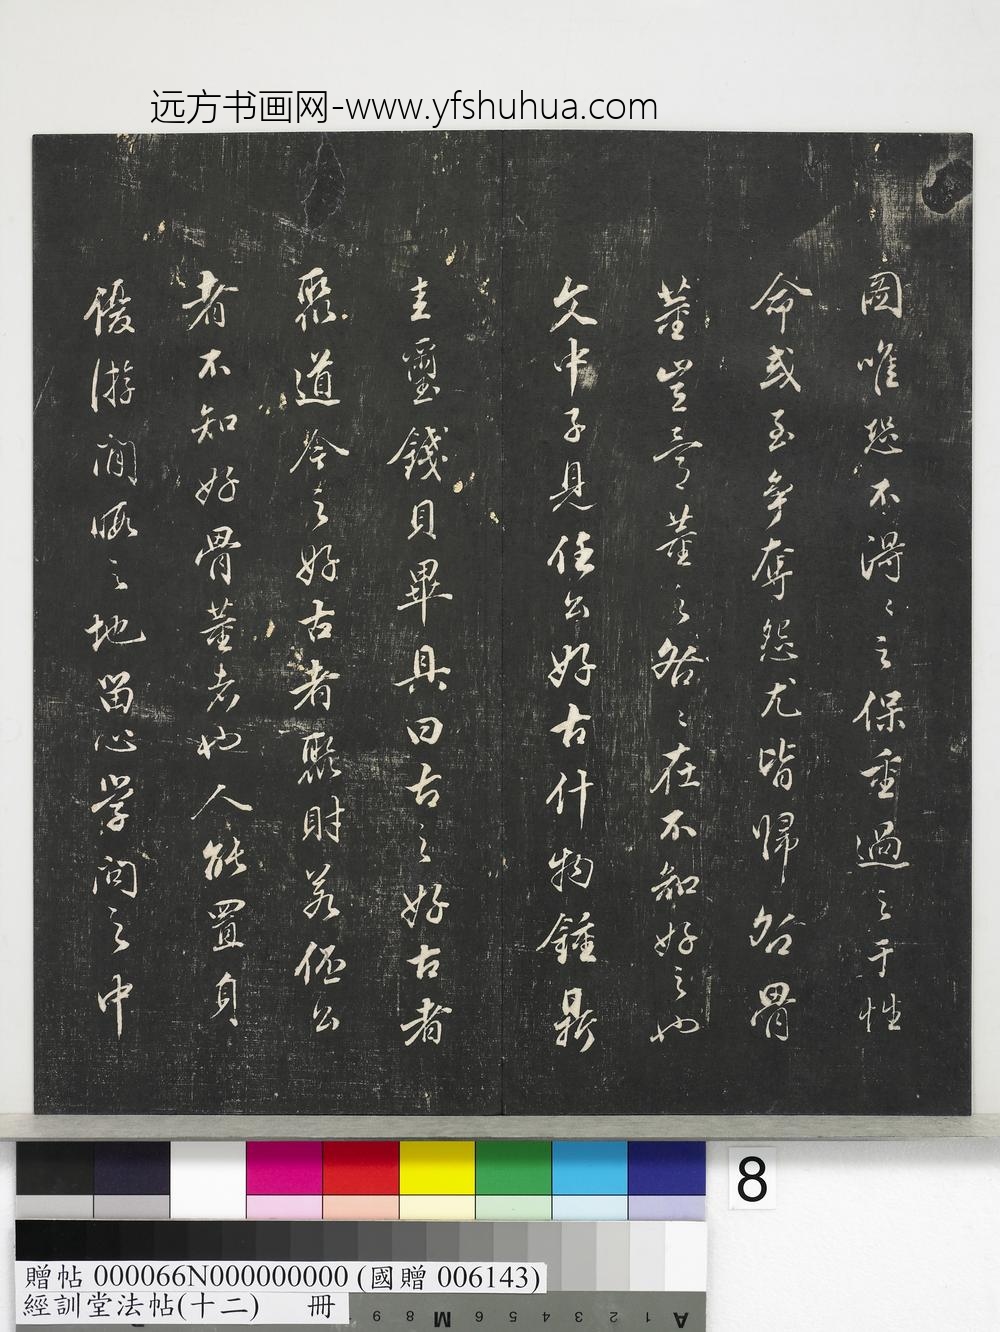 远方书画网-www.yfshuhua.com
圖唯恐不得〻之保重過之于性
命或至爭奪怨尤皆歸咎骨
董豈骨董之咎〻在不知好之也
文中子見任公好古什物鍾鼎
圭璽錢貝畢具曰古之好古者
聚道今之好古者聚財若任公
者不知好骨董者也人能置身
優游閒暇之地留心學問之中
8
贈帖 000066N000000000 (國贈 006143)
經訓堂法帖(十二) 冊
9 8 M 6 5 4 3 2 1 A